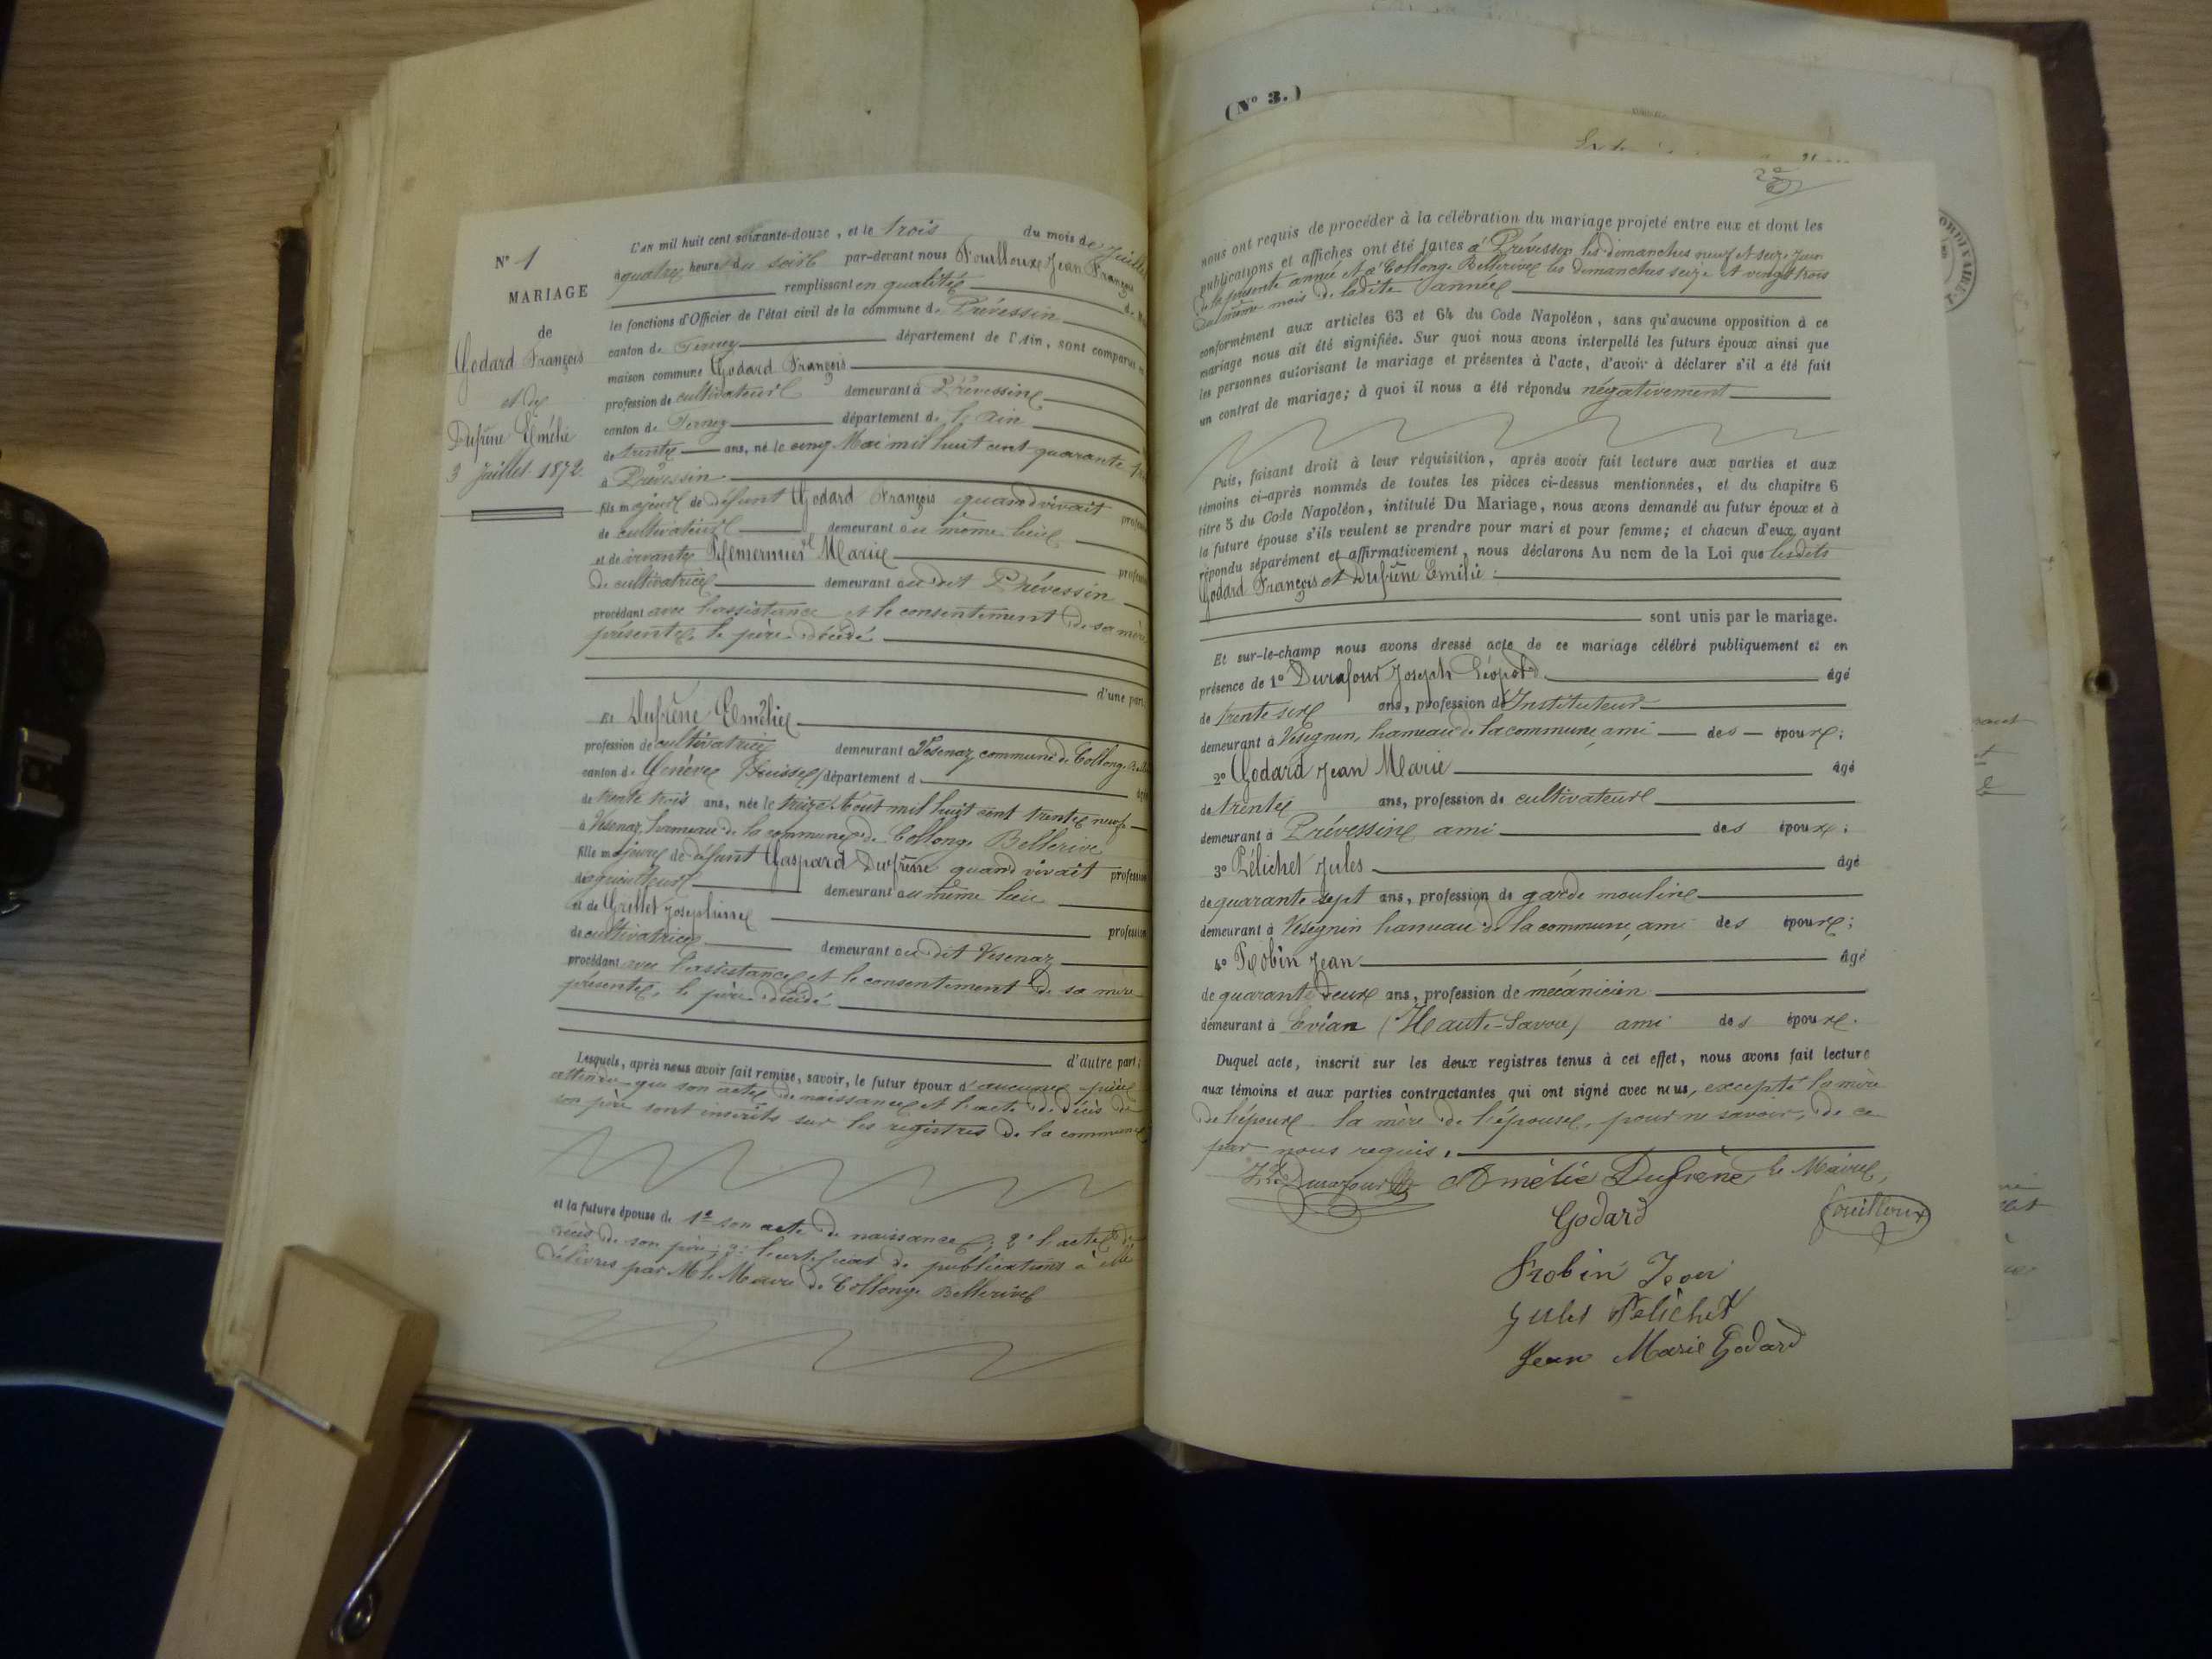 N° 1
MARIAGE
de
Godard François
et de
Dufrène Emélie
3 Juillet 1872.
L'AN mil huit cent soixante-douze, et le trois du mois de Juillet
à quatre heures du soir par-devant nous Fouilloux Jean François
remplissant en qualité de
les fonctions d'Officier de l'état civil de la commune de Prévessin
canton de Ferney département de l'Ain, sont comparus en
maison commune Godard François
profession de cultivateur demeurant à Prévessin
canton de Ferney département de l'Ain
de trente ans, né le cinq Mai mil huit cent quarante
à Prévessin
fils majeur de défunt Godard François quand vivait profession
de cultivateur demeurant au même lieu
et de vivante Marie profession
de cultivatrice demeurant au dit Prévessin
procédant avec l'assistance et le consentement de sa mère
présente, le père décédé
d'une part;
Et Dufrène Emélie
profession de cultivatrice demeurant Vésenaz, commune de Collonge
canton de Genève (Suisse) département d
de trente trois ans, née le treize Août mil huit cent trente neuf
à Vesenaz, hameau de la commune de Collonge Bellerive
fille majeure de défunt Gaspard Dufrène quand vivait profession
d'agriculteur demeurant au même lieu
et de Grillet Josephine profession
de cultivatrice demeurant au dit Vesenaz
procédant avec l'assistance et le consentement de sa mère
présente, le père décédé
d'autre part;
Lesquels, après nous avoir fait remise, savoir, le futur époux d'aucune pièce
attendu que son acte de naissance et l'acte de décès de
son père sont inscrits sur les registres de la commune
et la future épouse de 1° son acte de naissance; 2° l'acte de
décès de son père; 3° certificat de publications à elle
délivrés par M. le Maire de Collonge Bellerive
(N° 3.)
nous ont requis de procéder à la célébration du mariage projeté entre eux et dont les
publications et affiches ont été faites à Prévessin les dimanches neuf et seize Juin
de la présente année et à Collonge Bellerive les dimanches seize et vingt trois
du même mois de ladite année
conformément aux articles 63 et 64 du Code Napoléon, sans qu'aucune opposition à ce
mariage nous ait été signifiée. Sur quoi nous avons interpellé les futurs époux ainsi que
les personnes autorisant le mariage et présentes à l'acte, d'avoir à déclarer s'il a été fait
un contrat de mariage; à quoi il nous a été répondu négativement
Puis, faisant droit à leur réquisition, après avoir fait lecture aux parties et aux
témoins ci-après nommés de toutes les pièces ci-dessus mentionnées, et du chapitre 6
titre 5 du Code Napoléon, intitulé Du Mariage, nous avons demandé au futur époux et à
la future épouse s'ils veulent se prendre pour mari et pour femme; et chacun d'eux ayant
répondu séparément et affirmativement, nous déclarons Au nom de la Loi que lesdits
Godard François et Dufrène Emélie
sont unis par le mariage.
Et sur-le-champ nous avons dressé acte de ce mariage célébré publiquement et en
présence de 1° Durafour Joseph Léopold âgé
de trente six ans, profession d'Instituteur
demeurant à Vésegnin, hameau de la commune, ami des époux;
2° Godard Jean Marie âgé
de trente ans, profession de cultivateur
demeurant à Prévessin ami des époux;
3° Pélichet Jules âgé
de quarante sept ans, profession de garde moulin
demeurant à Vésegnin hameau de la commune, ami des époux;
4° Robin Jean âgé
de quarante deux ans, profession de mécanicien
demeurant à Evian (Haute-Savoie) ami des époux.
Duquel acte, inscrit sur les deux registres tenus à cet effet, nous avons fait lecture
aux témoins et aux parties contractantes qui ont signé avec nous, excepté la mère
de l'époux la mère de l'épouse, pour ne savoir, de ce
par nous requis.
Durafour Amélie Dufrène, Le Maire,
Godard Fouilloux
Robin Jean
Jules Pelichet
Jean Marie Godard